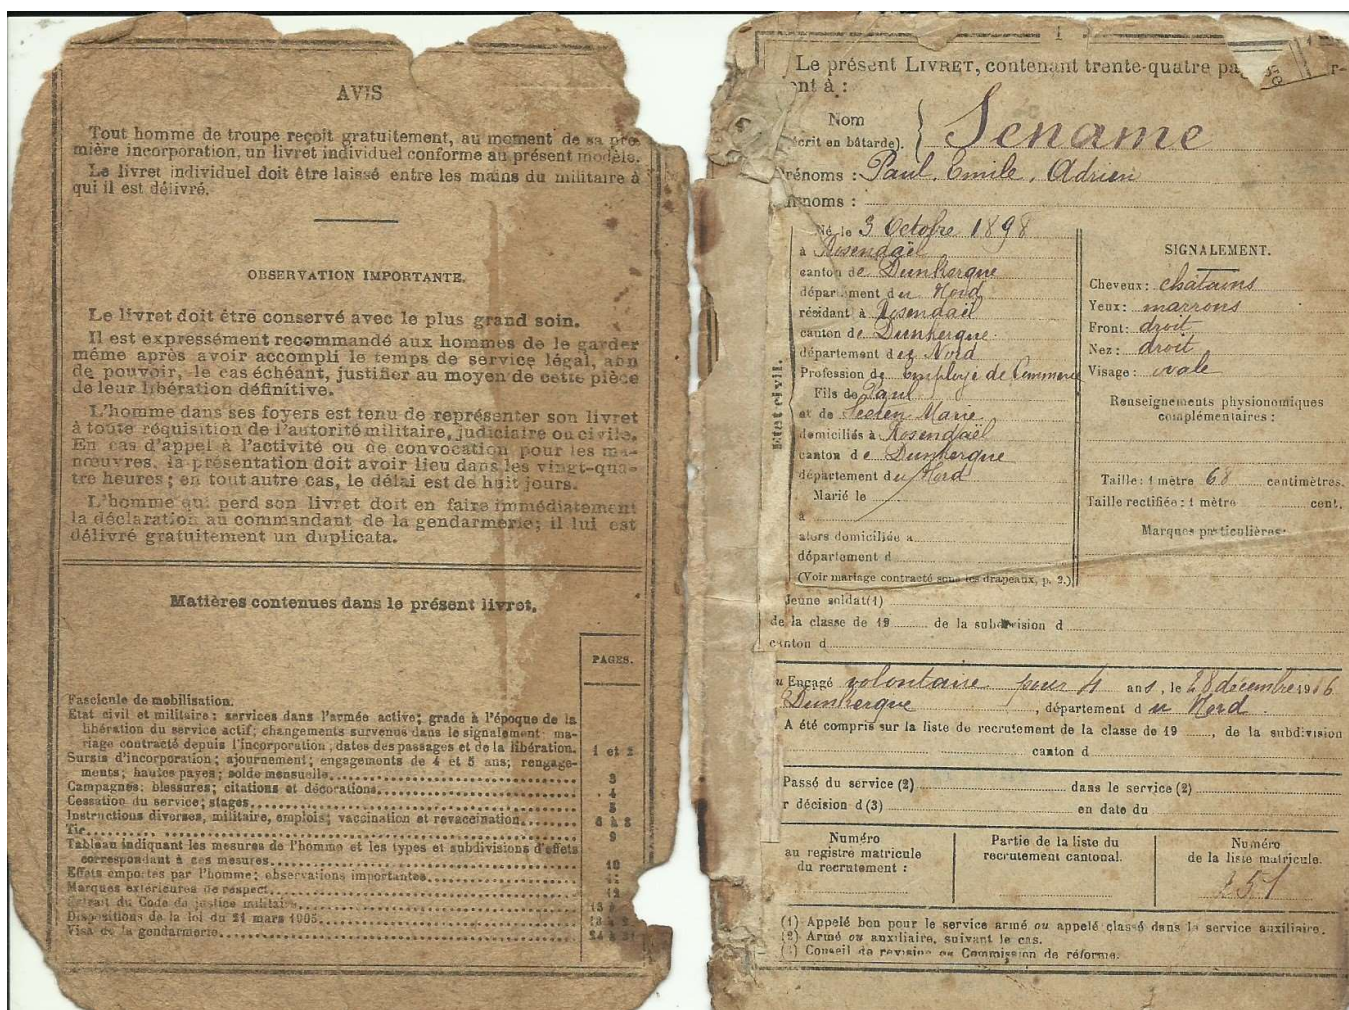 AVIS
Tout homme de troupe reçoit gratuitement, au moment de sa pre
mière incorporation, un livret individuel conforme au présent modèle.
Le livret individuel doit être laissé entre les mains du militaire à
qui il est délivré.
OBSERVATION IMPORTANTE.
Le livret doit être conservé avec le plus grand soin.
Il est expressément recommandé aux hommes de le garder
même après avoir accompli le temps de service légal, afin
de pouvoir, le cas échéant, justifier au moyen de cette pièce
de leur libération définitive.
L'homme dans ses foyers est tenu de représenter son livret
à toute réquisition de l'autorité militaire, judiciaire ou civile.
En cas d'appel à l'activité ou de convocation pour les ma-
nœuvres, la présentation doit avoir lieu dans les vingt-qua-
tre heures; en tout autre cas, le délai est de huit jours.
L'homme qui perd son livret doit en faire immédiatement
la déclaration au commandant de la gendarmerie; il lui est
délivré gratuitement un duplicata.
Matières contenues dans le présent livret.
PAGES.
Fascicule de mobilisation.
Etat civil et militaire; services dans l'armée active; grade à l'époque de la
libération du service actif; changements survenus dans le signalement; ma-
riage contracté depuis l'incorporation; dates des passages et de la libération. 1 et 2
Sursis d'incorporation; ajournement; engagements de 4 et 5 ans; rengage-
ments; hautes payes; solde mensuelle 3
Campagnes; blessures; citations et décorations 4
Cessation du service; stages 5
Instructions diverses, militaire, emplois; vaccination et revaccination 6 à 8
Tir 9
Tableau indiquant les mesures de l'homme et les types et subdivisions d'effets
correspondant à ces mesures 10
Effets emportés par l'homme; observations importantes 11
Marques extérieures de respect 12
Extrait du Code de justice militaire 13
Dispositions de la loi du 21 mars 1905
Visa de la gendarmerie
1
Le présent LIVRET, contenant trente-quatre pa
nt à :
Nom
écrit en bâtarde). Sename
rénoms : Paul, Emile, Adrien
rnoms :
Né le 3 Octobre 1898
à Rosendaël
canton de Dunkerque
département du Nord
résidant à Rosendaël
canton de Dunkerque
département du Nord
Profession de Employé de Commerce
Fils de Paul
et de Marie
domiciliés à Rosendaël
canton de Dunkerque
département du Nord
Marié le
à
alors domiciliée à
département d
(Voir mariage contracté sous les drapeaux, p. 2.)
Etat civil.
SIGNALEMENT.
Cheveux: châtains
Yeux: marrons
Front: droit
Nez: droit
Visage: ovale
Renseignements physionomiques
complémentaires :
Taille: 1 mètre 68 centimètres.
Taille rectifiée: 1 mètre cent.
Marques particulières:
Jeune soldat(1)
de la classe de 19 de la subdivision d
canton d
Engagé volontaire pour 4 ans, le 28 décembre 1916
Dunkerque, département du Nord.
A été compris sur la liste de recrutement de la classe de 19 , de la subdivision
canton d
Passé du service (2) dans le service (2)
r décision d(3) en date du
Numéro
au registre matricule
du recrutement :
Partie de la liste du
recrutement cantonal.
Numéro
de la liste matricule.
251
(1) Appelé bon pour le service armé ou appelé classé dans le service auxiliaire.
(2) Armé ou auxiliaire, suivant le cas.
(3) Conseil de revision ou Commission de réforme.